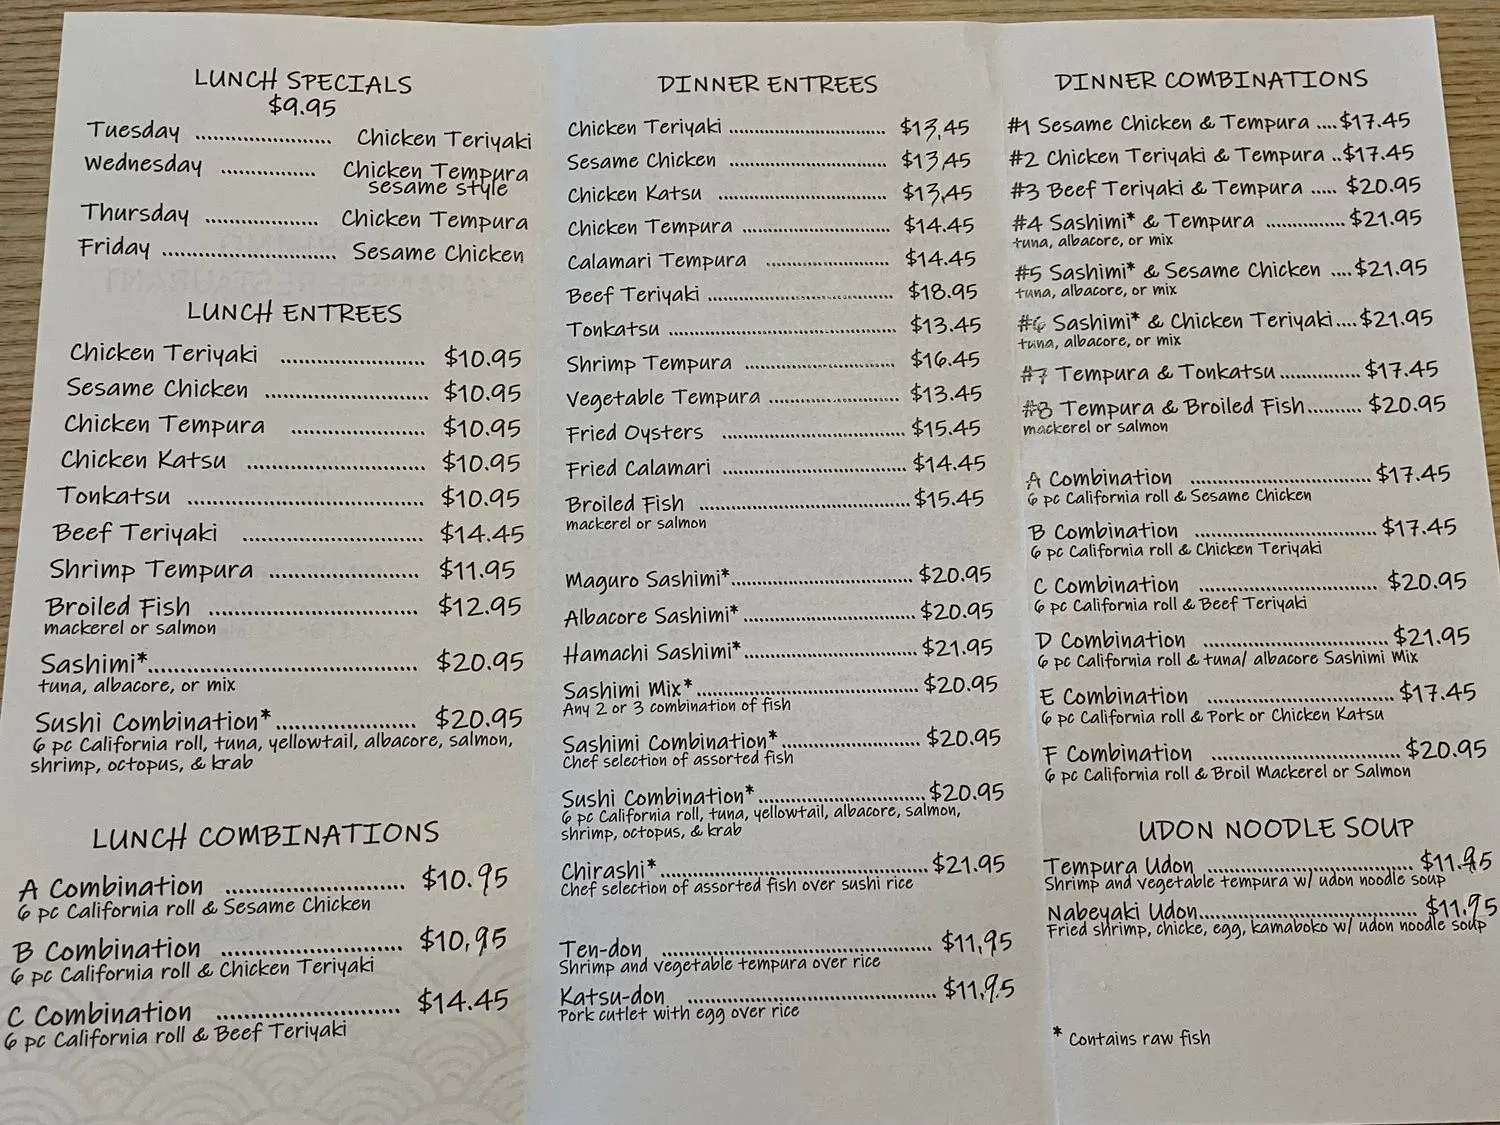 LUNCH SPECIALS
$9.95
Tuesday .................... Chicken Teriyaki
Wednesday ............... Chicken Tempura
sesame style
Thursday .................. Chicken Tempura
Friday ............................ Sesame Chicken
LUNCH ENTREES
Chicken Teriyaki ..................... $10.95
Sesame Chicken ........................ $10.95
Chicken Tempura .................... $10.95
Chicken Katsu .......................... $10.95
Tonkatsu ................................... $10.95
Beef Teriyaki ........................... $14.45
Shrimp Tempura ...................... $11.95
Broiled Fish .............................. $12.95
mackerel or salmon
Sashimi*........................................ $20.95
tuna, albacore, or mix
Sushi Combination*..................... $20.95
6 pc California roll, tuna, yellowtail, albacore, salmon,
shrimp, octopus, & krab
LUNCH COMBINATIONS
A Combination .......................... $10.95
6 pc California roll & Sesame Chicken
B Combination .......................... $10,95
6 pc California roll & Chicken Teriyaki
C Combination .......................... $14.45
6 pc California roll & Beef Teriyaki
DINNER ENTREES
Chicken Teriyaki ............................... $13,45
Sesame Chicken ............................... $13,45
Chicken Katsu ................................. $13,45
Chicken Tempura ............................. $14.45
Calamari Tempura ........................ $14.45
Beef Teriyaki ..................................... $18.95
Tonkatsu ............................................. $13.45
Shrimp Tempura .............................. $16.45
Vegetable Tempura .......................... $13.45
Fried Oysters .................................... $15.45
Fried Calamari .................................... $14.45
Broiled Fish ......................................... $15.45
mackerel or salmon
Maguro Sashimi*.................................... $20.95
Albacore Sashimi*.................................. $20.95
Hamachi Sashimi*.................................. $21.95
Sashimi Mix*........................................... $20.95
Any 2 or 3 combination of fish
Sashimi Combination*........................... $20.95
Chef selection of assorted fish
Sushi Combination*................................. $20.95
6 pc California roll, tuna, yellowtail, albacore, salmon,
shrimp, octopus, & krab
Chirashi*.................................................... $21.95
Chef selection of assorted fish over sushi rice
Ten-don .................................................... $11,95
Shrimp and vegetable tempura over rice
Katsu-don ................................................ $11,95
Pork cutlet with egg over rice
DINNER COMBINATIONS
#1 Sesame Chicken & Tempura ....$17.45
#2 Chicken Teriyaki & Tempura ..$17.45
#3 Beef Teriyaki & Tempura ..... $20.95
#4 Sashimi* & Tempura ...............$21.95
tuna, albacore, or mix
#5 Sashimi* & Sesame Chicken ....$21.95
tuna, albacore, or mix
#6 Sashimi* & Chicken Teriyaki....$21.95
tuna, albacore, or mix
#7 Tempura & Tonkatsu............... $17.45
#8 Tempura & Broiled Fish.......... $20.95
mackerel or salmon
A Combination ................................... $17.45
6 pc California roll & Sesame Chicken
B Combination ................................... $17.45
6 pc California roll & Chicken Teriyaki
C Combination ................................... $20.95
6 pc California roll & Beef Teriyaki
D Combination ................................... $21.95
6 pc California roll & tuna/ albacore Sashimi Mix
E Combination ................................... $17.45
6 pc California roll & Pork or Chicken Katsu
F Combination ................................... $20.95
6 pc California roll & Broil Mackerel or Salmon
UDON NOODLE SOUP
Tempura Udon .................................... $11.95
Shrimp and vegetable tempura w/ udon noodle soup
Nabeyaki Udon...................................... $11.95
Fried shrimp, chicke, egg, kamaboko w/ udon noodle soup
* Contains raw fish